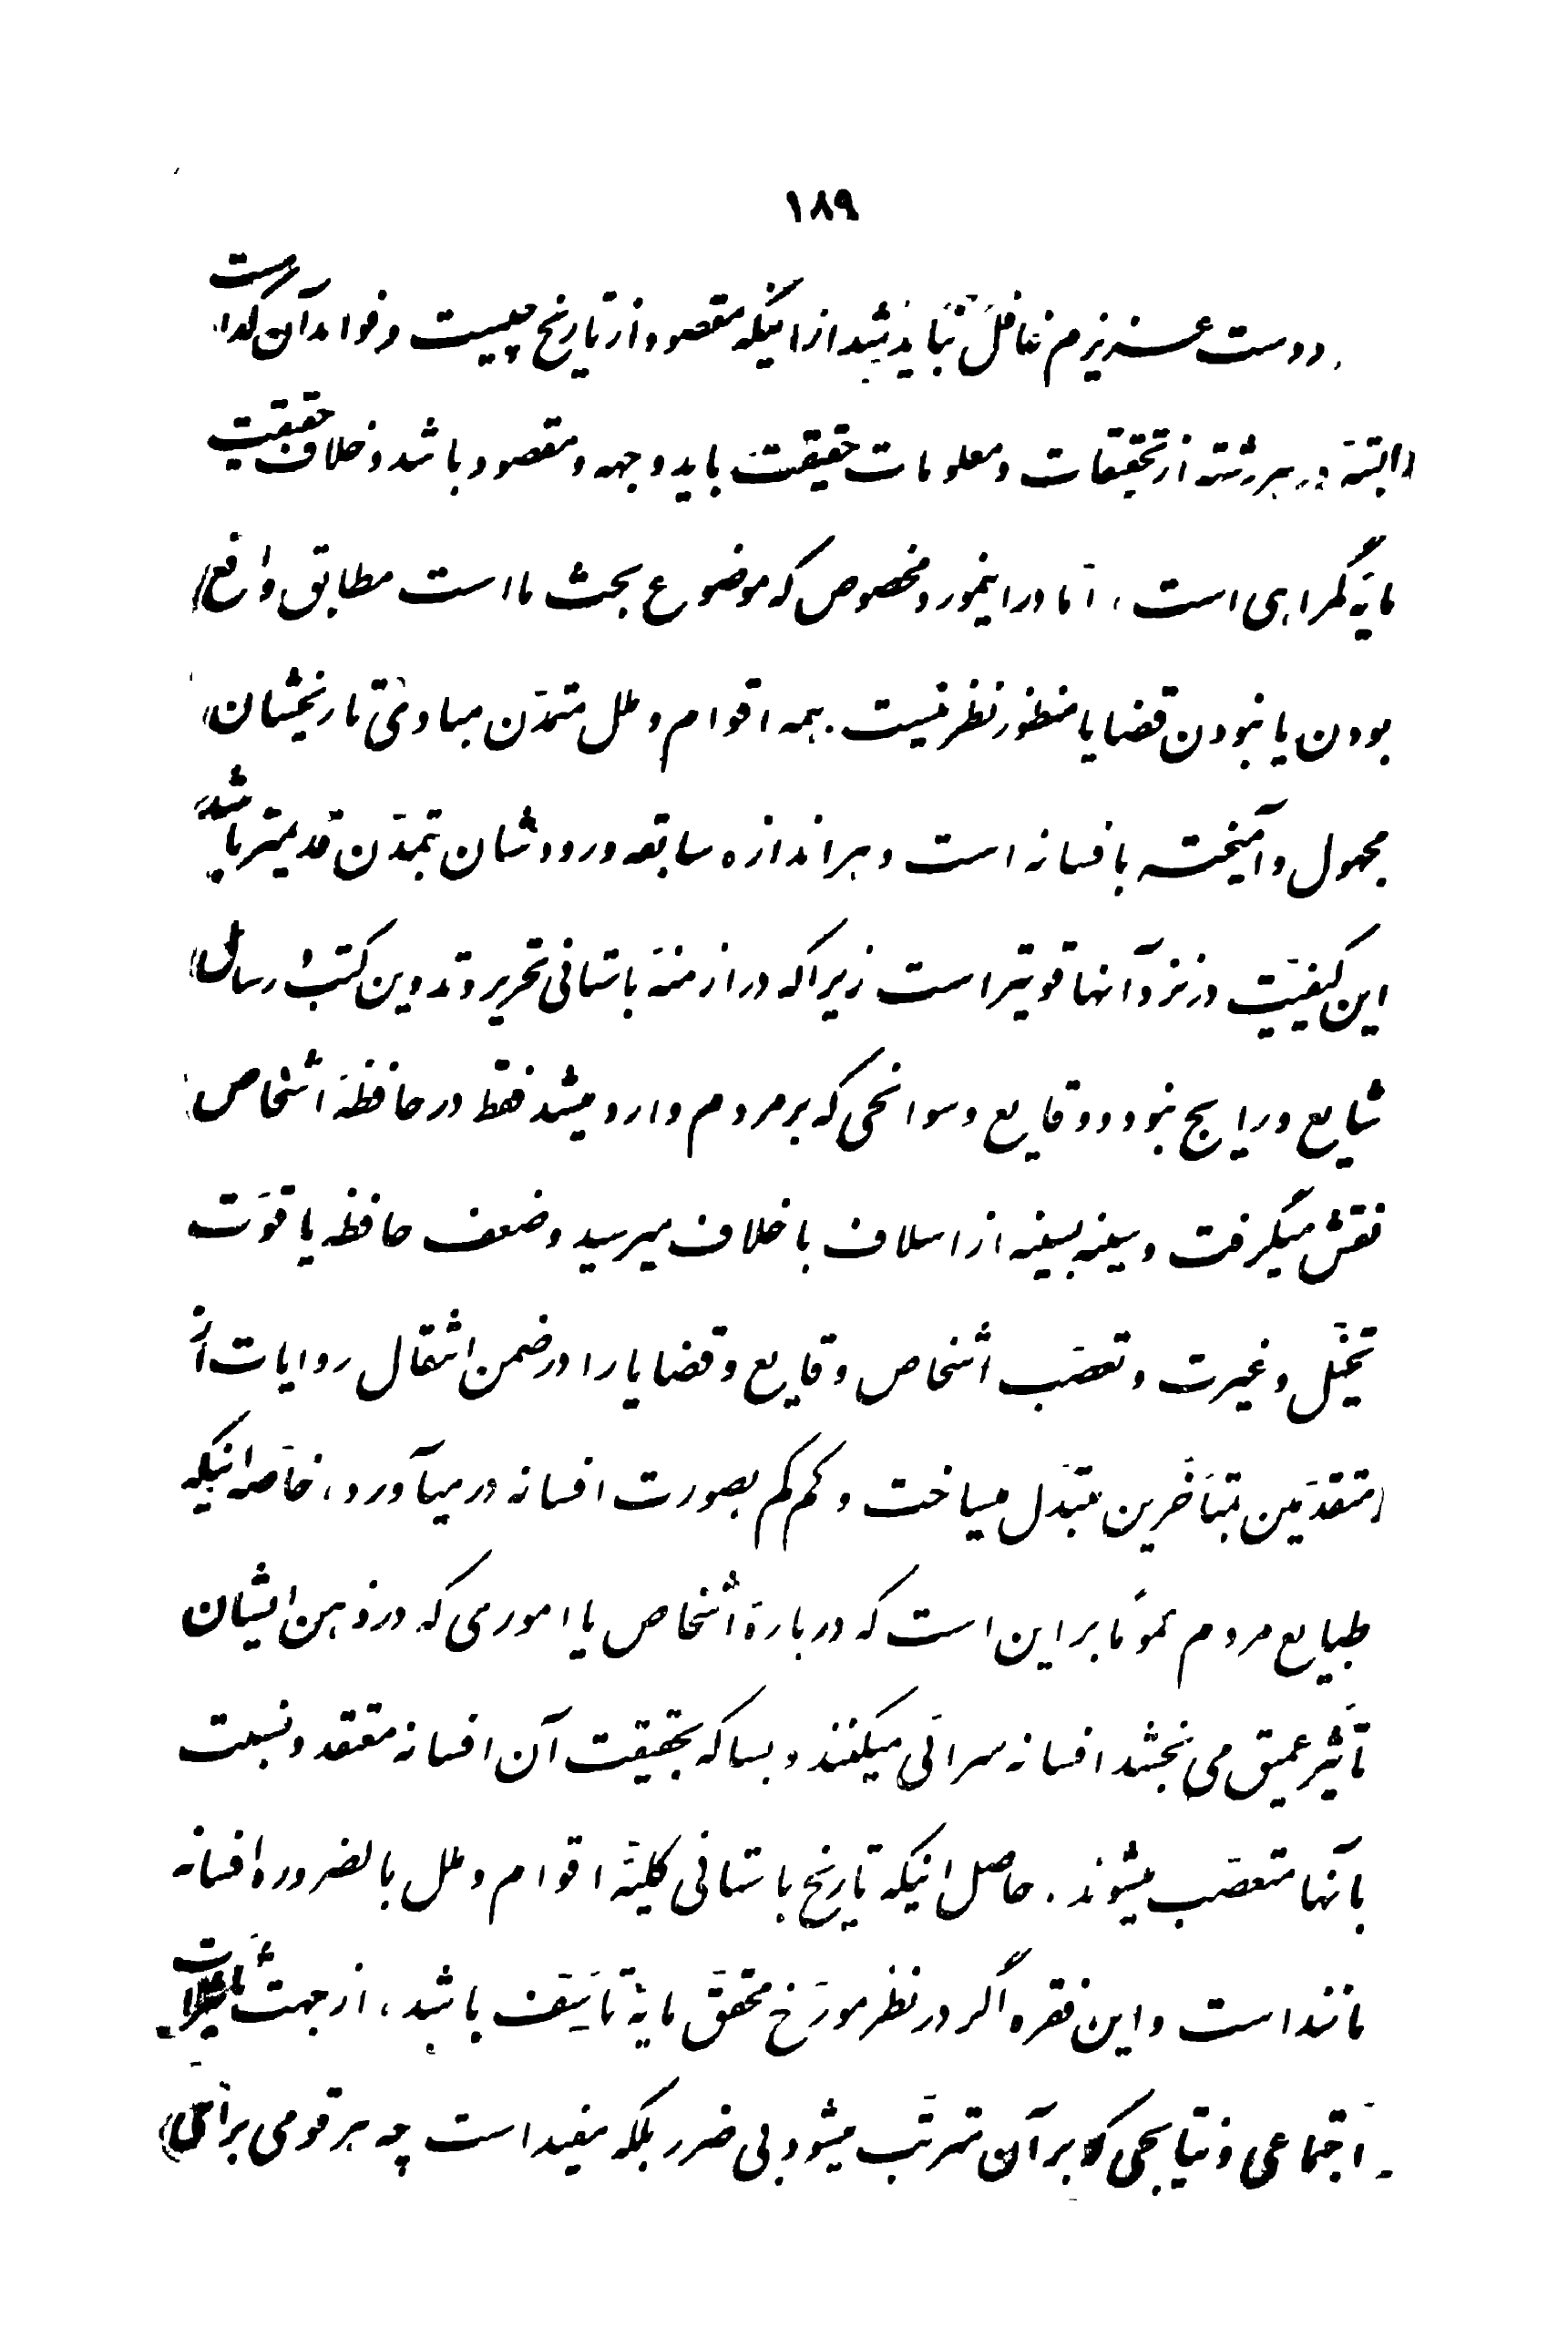 ۱۸۹
دوست عزیزم غافل نباید شد از اینکه مقصود از تاریخ چیست و فواید آن کدام است
البته در هر رشته از تحقیقات و معلومات حقیقت باید وجهه و مقصود باشد و خلاف حقیقت
مایهٔ گمراهی است، امّا در اینمورد مخصوص که موضوع بحث ما است مطابق واقع
بودن یا نبودن قضایا منظور نظر نیست. همه اقوام و ملل متمدّن مبادی تاریخشان
مجهول و آمیخته بافسانه است و هر اندازه سابقه ورودشان بتمدّن قدیمتر باشد
این کیفیّت در نزد آنها قویتر است زیرا که در ازمنهٔ باستانی تحریر و تدوین کتب و رسائل
شایع و رایج نبود و وقایع و سوانحی که بر مردم وارد میشد فقط در حافظهٔ اشخاص
نقش میگرفت و سینه بسینه از اسلاف باخلاف میرسید و ضعف حافظه یا قوّت
تخیّل و غیرت و تعصّب اشخاص وقایع و قضایا را در ضمن انتقال روایات از
متقدّمین بمتأخّرین متبدّل میساخت و کم کم بصورت افسانه در میآورد، خاصّه اینکه
طبایع مردم عموماً بر این است که دربارهٔ اشخاص یا اموری که در ذهن ایشان
تأثیر عمیق می بخشد افسانه سرائی میکنند و بسا که بحقیقت آن افسانه معتقد و نسبت
بآنها متعصّب میشوند. حاصل اینکه تاریخ باستانی کلیّهٔ اقوام و ملل بالضروره افسانه
مانند است و این فقره اگر در نظر مورّخ محقّق مایهٔ تأسّف باشد، از جهت تأثیرات
اجتماعی و نتایجی که بر آن مترتّب میشود بی ضرر بلکه مفید است چه هر قومی برای